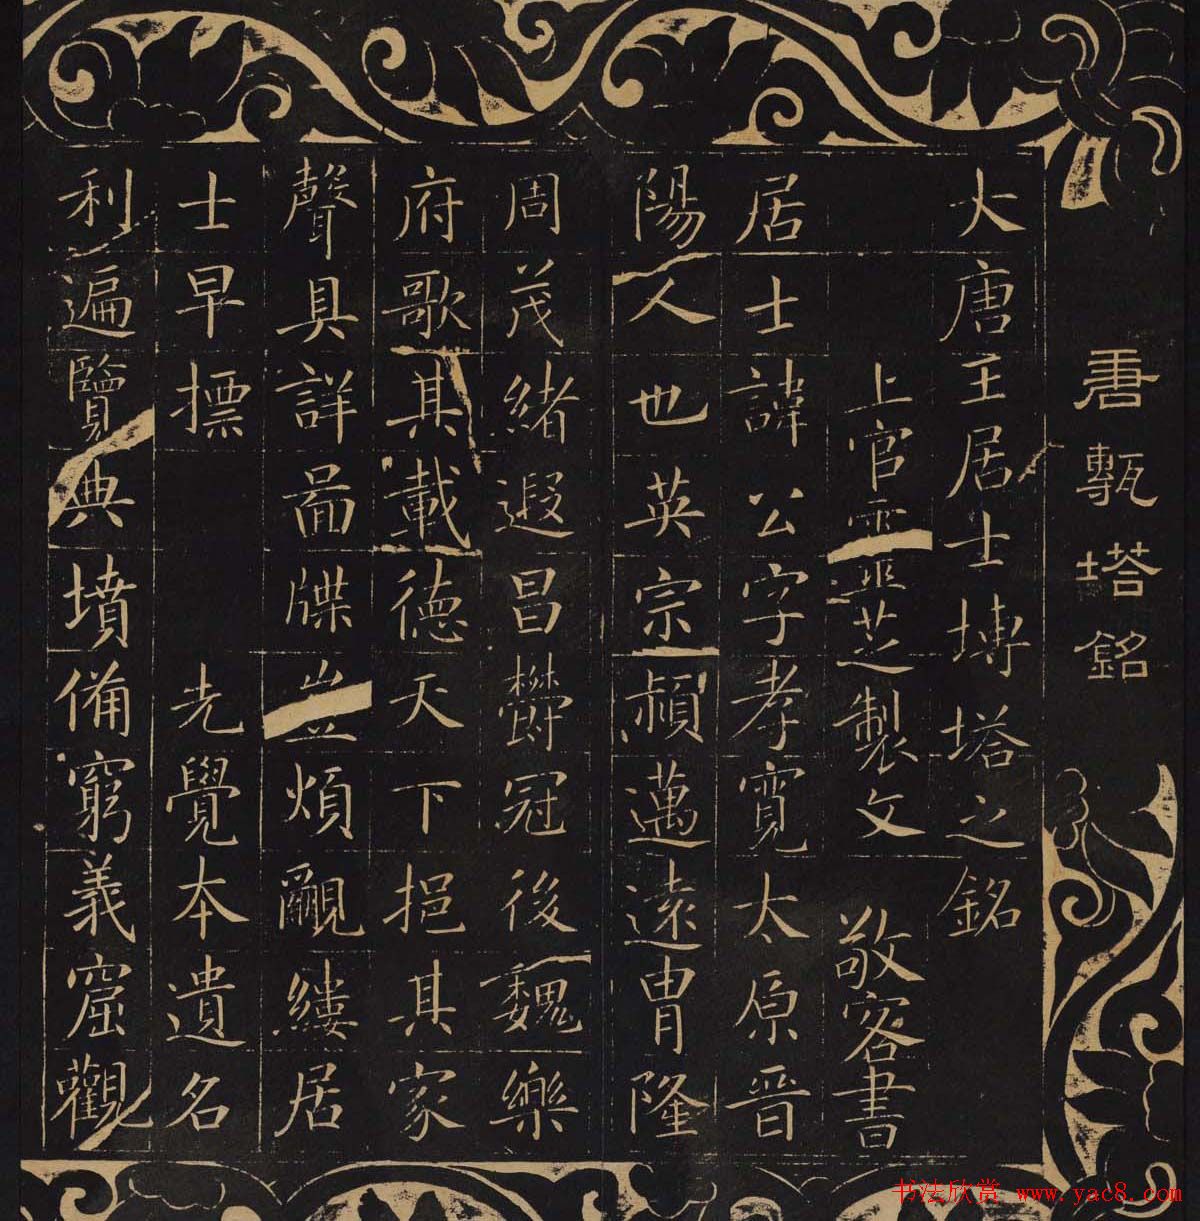 唐甎塔銘
大唐王居士塼塔之銘
上官靈芝製文 敬客書
居士諱公字孝寬太原晉
陽人也英宗穎邁遠胄隆
周茂緒遐昌鬱冠後魏樂
府歌其載德天下挹其家
聲具詳圖牒豈煩覶縷居
士早摽 先覺本遺名
利遍覽典墳備窮義窟觀
书法欣赏 www.yac8.com